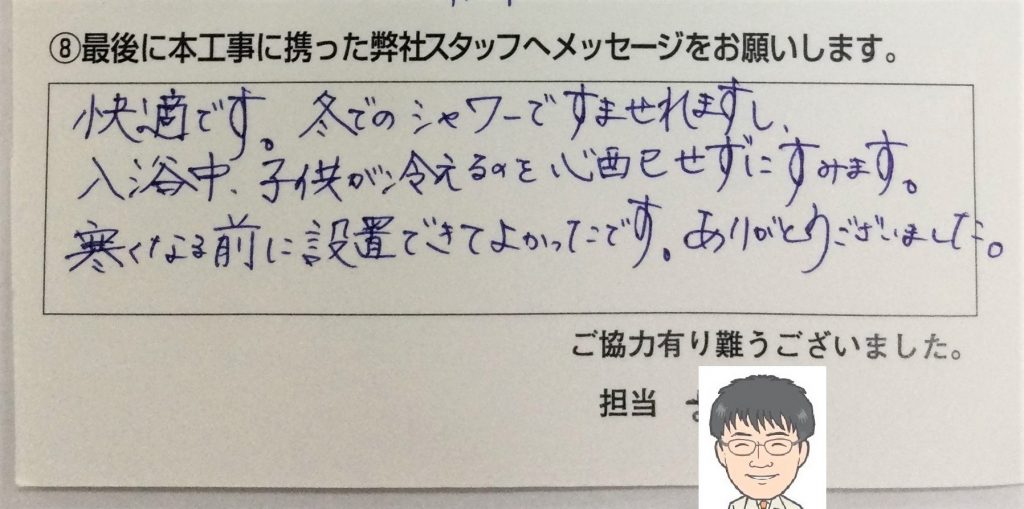 ⑧最後に本工事に携った弊社スタッフへメッセージをお願いします。
快適です。冬でのシャワーですませれますし、
入浴中、子供が冷えるのを心配せずにすみます。
寒くなる前に設置できてよかったです。ありがとうございました。
ご協力有り難うございました。
担当